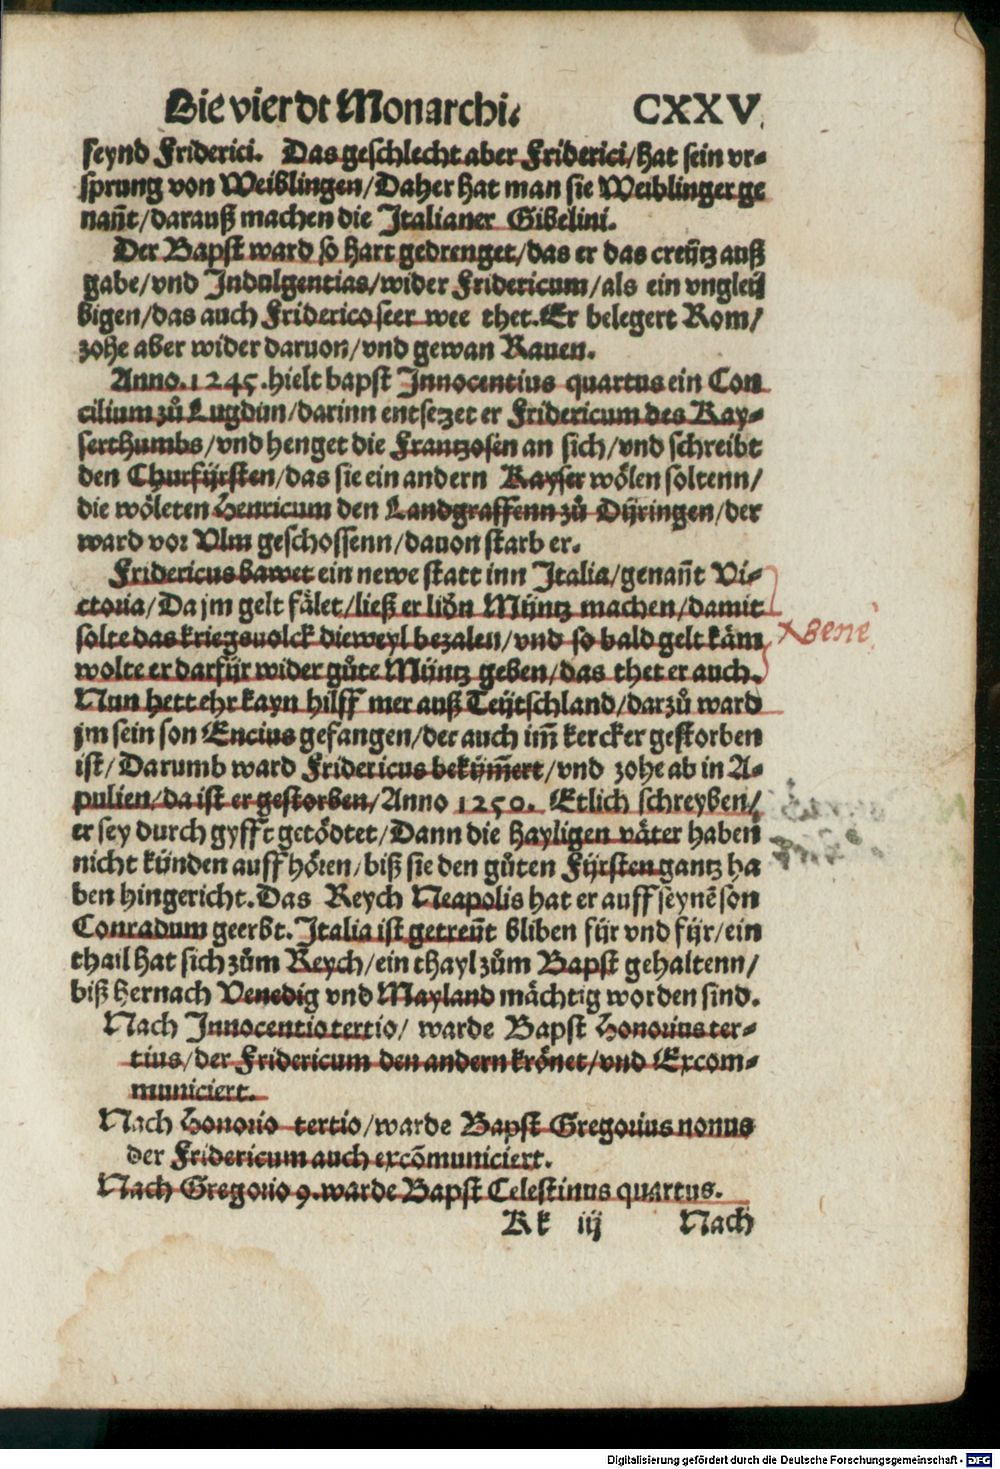 Die vierdt Monarchi. CXXV.
seynd Friderici. Das geschlecht aber Friderici/hat sein vr-
sprung von Weiblingen/Daher hat man sie Weiblinger ge
nañt/darauß machen die Italianer Gibelini.
Der Bapst ward so hart gedrenget/das er das creütz auß
gabe/vnd Indulgentias/wider Fridericum/als ein vngleü
bigen/das auch Friderico seer wee thet. Er belegert Rom/
zohe aber wider daruon/vnd gewan Rauen.
Anno. 1245. hielt bapst Innocentius quartus ein Con
cilium zů Lugdun/darinn entsetzet er Fridericum des Kay-
serthumbs/vnd henget die Frantzosen an sich/vnd schreibt
den Churfürsten/das sie ein andern Kayser wölen soltenn/
die wöleten Henricum den Landgraffenn zů Düringen/der
ward vor Vlm geschossenn/dauon starb er.
Fridericus bawet ein newe statt inn Italia/genañt Vi-
ctoria/Da jm gelt fälet/ließ er lidrin Müntz machen/damit
solte das kriegsuolck dieweyl bezalen/vnd so bald gelt käm
wolte er darfür wider gůte Müntz geben/das thet er auch.
× Bene
Nun hett ehr kayn hilff mer auß Teütschland/darzů ward
jm sein son Encius gefangen/der auch im̃ kercker gestorben
ist/Darumb ward Fridericus bekům̃ert/vnd zohe ab in A-
pulien/da ist er gestorben/Anno 1250. Etlich schreyben/
er sey durch gyfft getödtet/Dann die hayligen väter haben
nicht künden auff hören/biß sie den gůten Fürsten gantz ha
ben hingericht. Das Reych Neapolis hat er auff seynē son
Conradum geerbt. Italia ist getreñt bliben für vnd für/ein
thail hat sich zům Reych/ein thayl zům Bapst gehaltenn/
biß hernach Venedig vnd Mayland mächtig worden sind.
Nach Innocentio tertio/ warde Bapst Honorius ter-
tius/der Fridericum den andern krönet/vnd Excom-
municiert.
Nach Honorio tertio/warde Bapst Gregorius nonus
der Fridericum auch excōmuniciert.
Nach Gregorio 9. warde Bapst Celestinus quartus.
Kk iij Nach
Digitalisierung gefördert durch die Deutsche Forschungsgemeinschaft - DFG